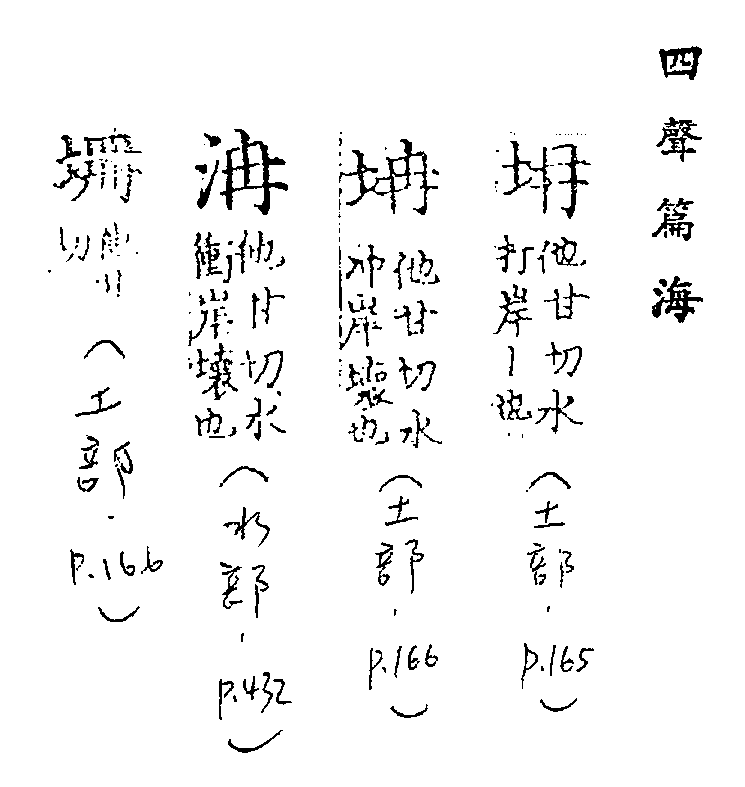 四聲篇海
坍
他甘切水
打岸丨也
(土部.
p.165)
坍
他甘切水
冲岸壞也
(土部.
p.166)
泹
他甘切水
衝岸壞也
(水部.
p.432)
切
(土部.
p.166)